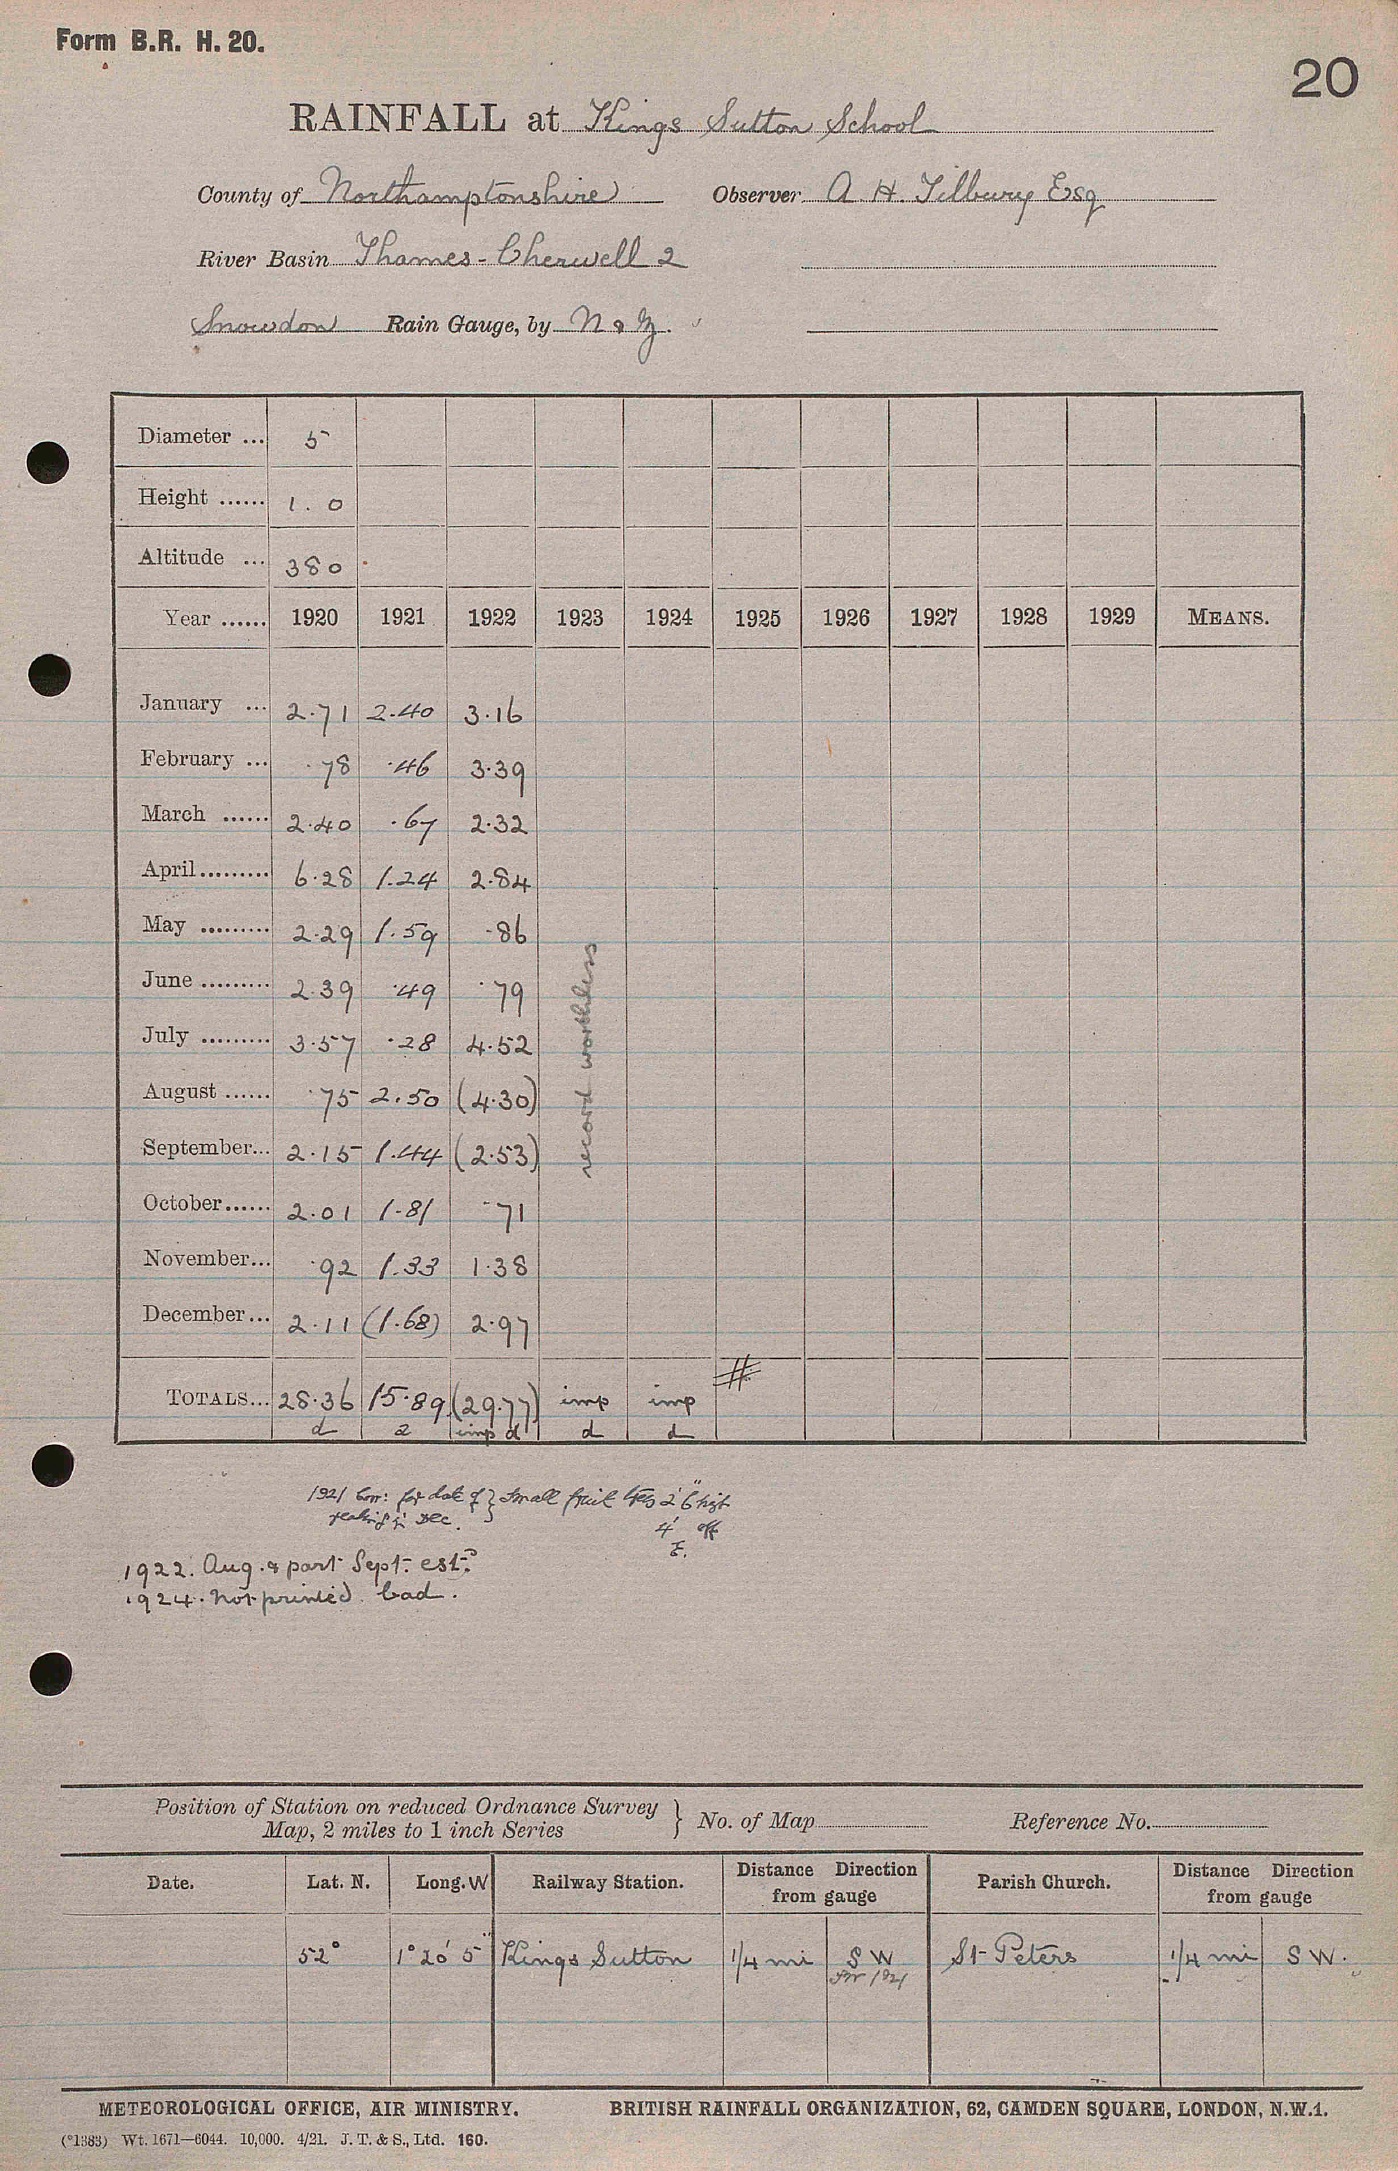 Form B.R. H. 20.
20
RAINFALL at Kings Sutton School
County of Northamptonshire Observer A. H. Tilbury Esq
River Basin Thames - Cherwell 2
Snowdon Rain Gauge, by N & Z.
Diameter ... 5
Height ...... 1.0
Altitude ... 380
Year ...... 1920 1921 1922 1923 1924 1925 1926 1927 1928 1929 MEANS.
January ... 2.71 2.40 3.16
February ... .78 .46 3.39
March ...... 2.40 .67 2.32
April......... 6.28 1.24 2.84
May ......... 2.29 1.59 .86
June ......... 2.39 .49 .79
July ......... 3.57 .28 4.52
August ...... .75 2.50 (4.30)
September... 2.15 1.44 (2.53)
October...... 2.01 1.81 .71
November... .92 1.33 1.38
December... 2.11 (1.68) 2.97
record worthless
TOTALS... 28.36 15.89 (29.77) imp imp #
d 2 imp d d d
1921 Corr: for date of } Small fruit trees 2' 6" high
reading in Dec. 4' off
E.
1922. Aug. & part Sept. estd.
1924. Not printed. bad.
Position of Station on reduced Ordnance Survey } No. of Map Reference No.
Map, 2 miles to 1 inch Series
Date. Lat. N. Long. W Railway Station. Distance Direction from gauge Parish Church. Distance Direction from gauge
52° 1° 20' 5" Kings Sutton 1/4 mi S W St Peters 1/4 mi S W.
1921
METEOROLOGICAL OFFICE, AIR MINISTRY. BRITISH RAINFALL ORGANIZATION, 62, CAMDEN SQUARE, LONDON, N.W.1.
(*1383) Wt. 1671—6044. 10,000. 4/21. J. T. & S., Ltd. 160.